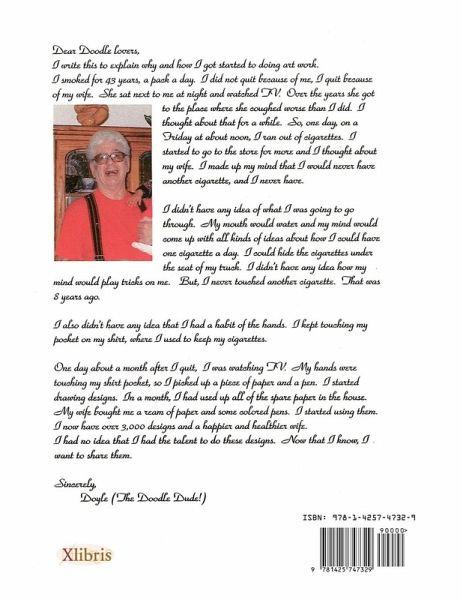 Dear Doodle lovers,
I write this to explain why and how I got started to doing art work.
I smoked for 43 years, a pack a day. I did not quit because of me, I quit because
of my wife. She sat next to me at night and watched TV. Over the years she got
to the place where she coughed worse than I did. I
thought about that for a while. So, one day, on a
Friday at about noon, I ran out of cigarettes. I
started to go to the store for more and I thought about
my wife. I made up my mind that I would never have
another cigarette, and I never have.
I didn't have any idea of what I was going to go
through. My mouth would water and my mind would
come up with all kinds of ideas about how I could have
one cigarette a day. I could hide the cigarettes under
the seat of my truck. I didn't have any idea how my
mind would play tricks on me. But, I never touched another cigarette. That was
8 years ago.
I also didn't have any idea that I had a habit of the hands. I kept touching my
pocket on my shirt, where I used to keep my cigarettes.
One day about a month after I quit, I was watching TV. My hands were
touching my shirt pocket, so I picked up a piece of paper and a pen. I started
drawing designs. In a month, I had used up all of the spare paper in the house.
My wife bought me a ream of paper and some colored pens. I started using them.
I now have over 3,000 designs and a happier and healthier wife.
I had no idea that I had the talent to do these designs. Now that I know, I
want to share them.
Sincerely,
Doyle (The Doodle Dude!)
ISBN: 978-1-4257-4732-9
90000>
9 781425 747329
Xlibris